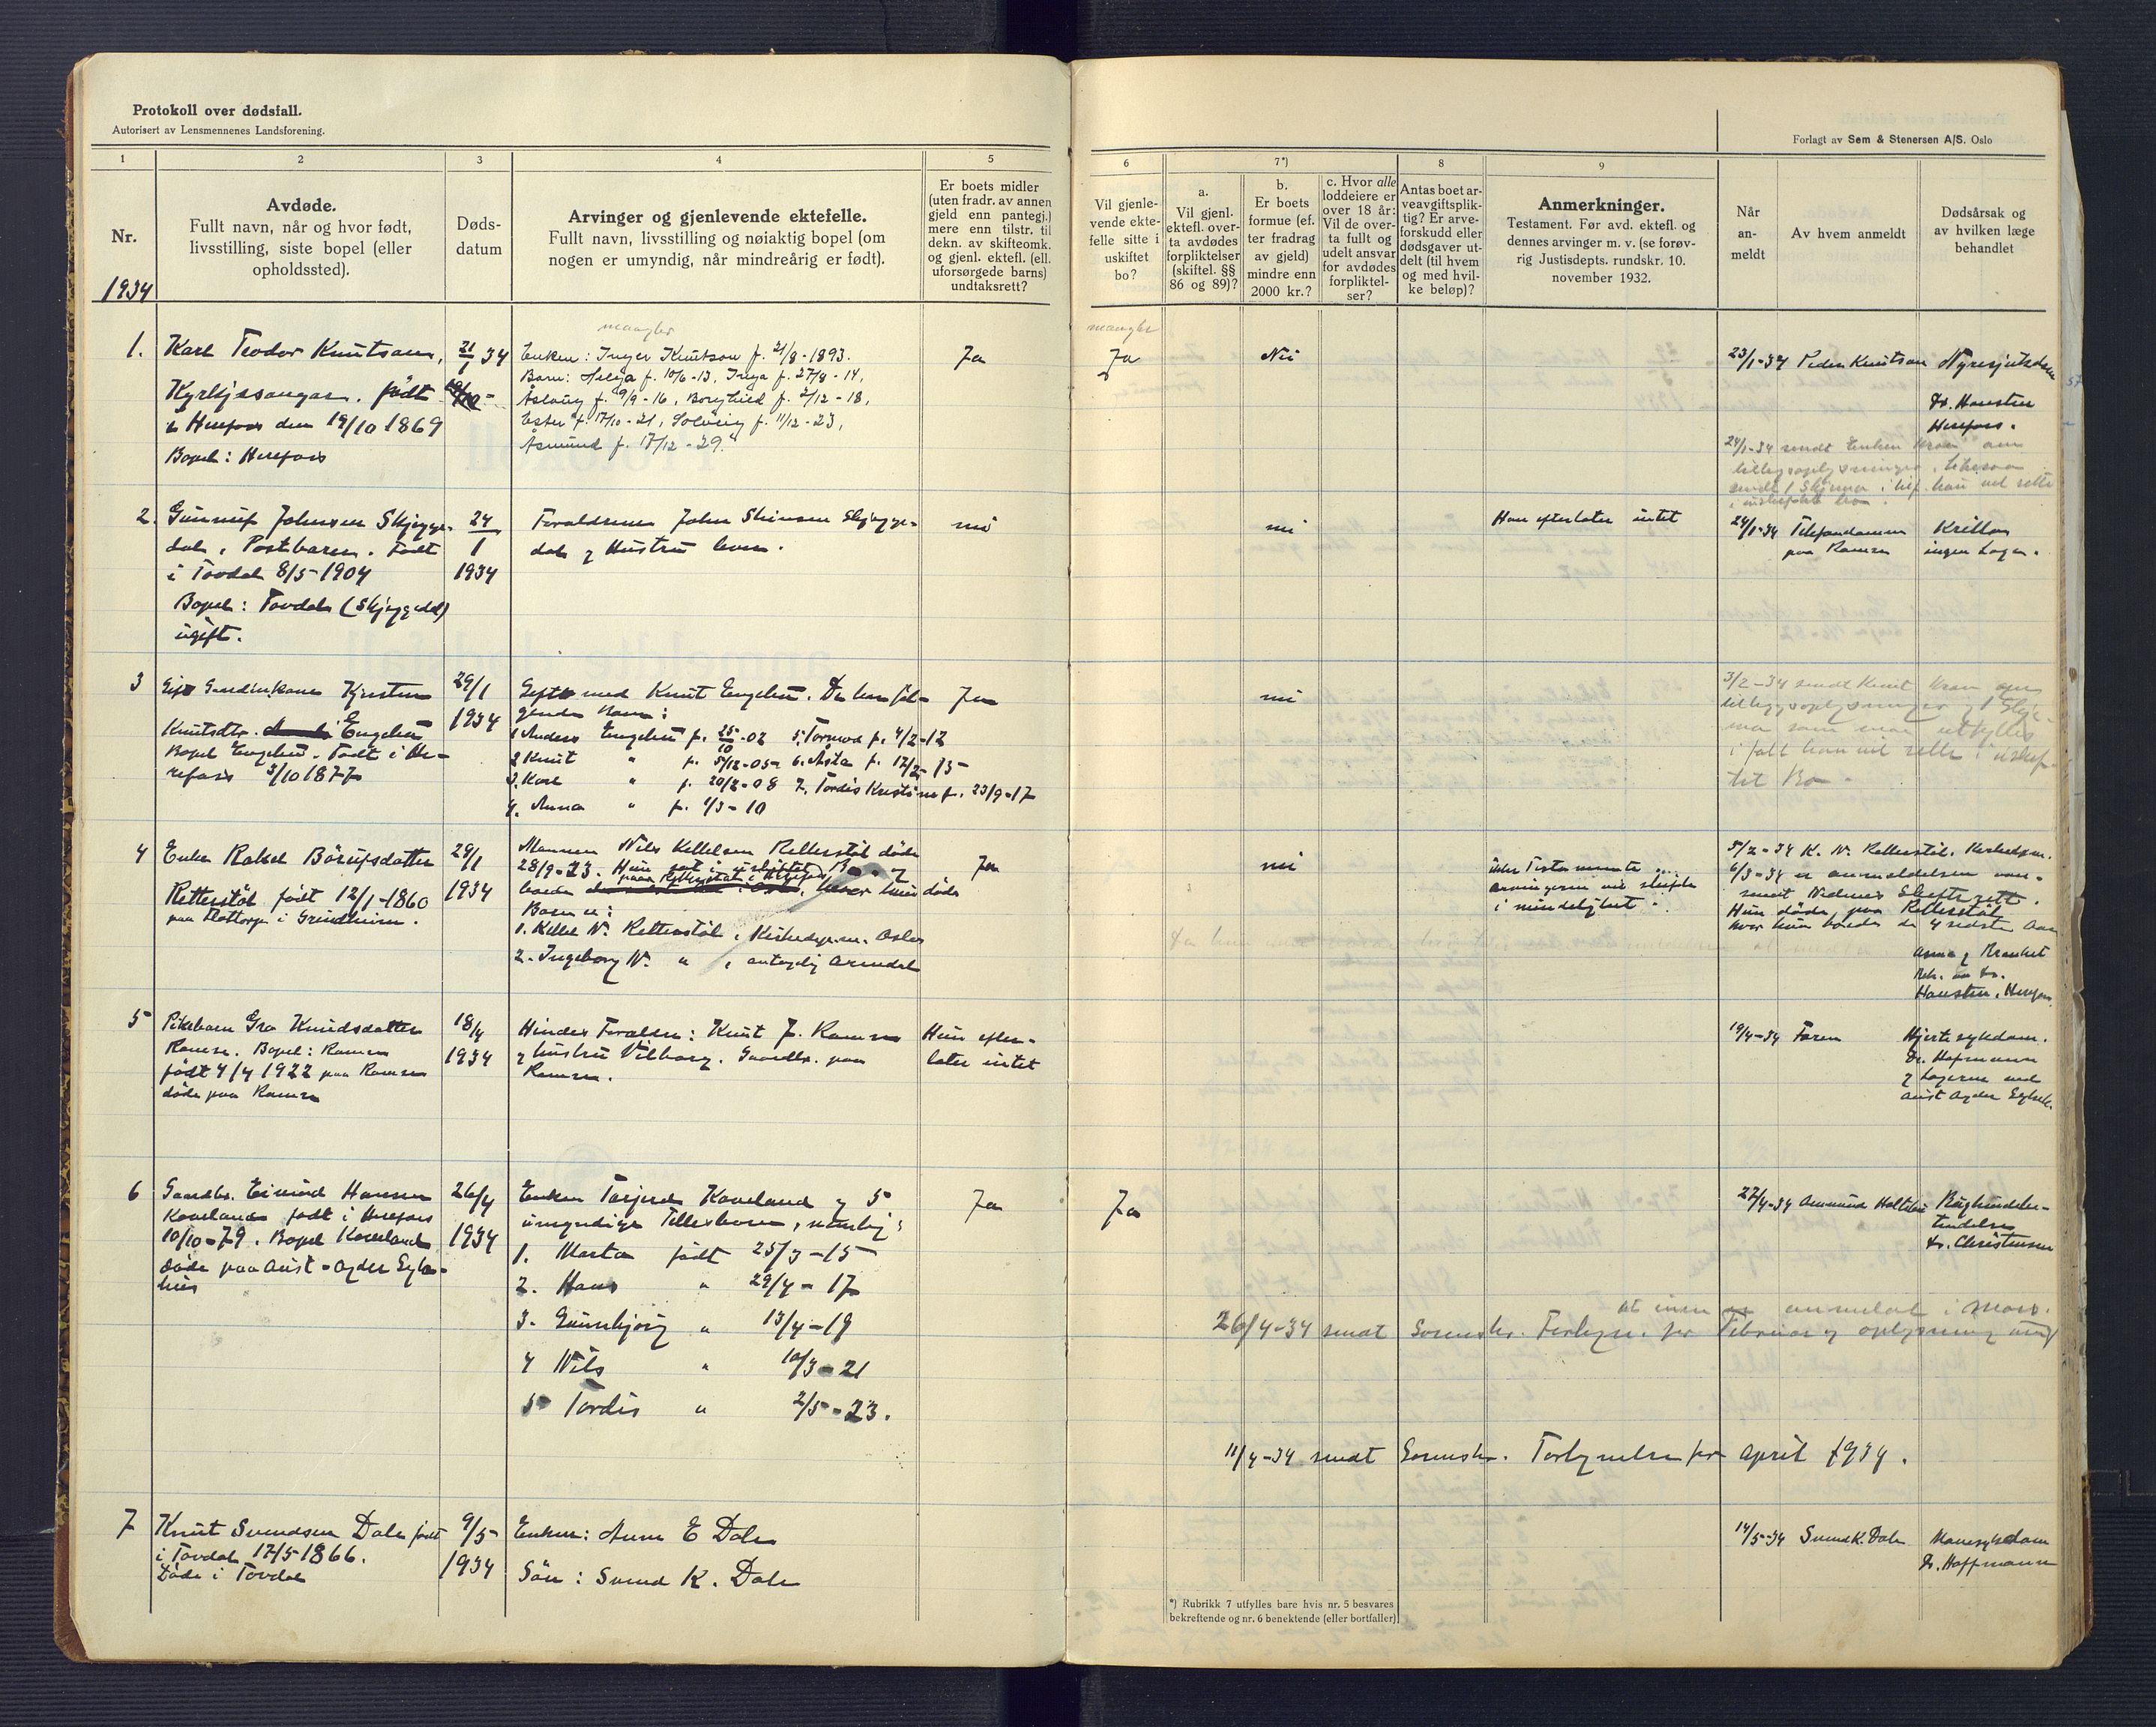 Protokoll over dødsfall.
Autorisert av Lensmennenes Landsforening.
1
2
3
4
5
Nr.
1934
Avdøde.
Fullt navn, når og hvor født,
livsstilling, siste bopel (eller
opholdssted).
Døds-
datum
Arvinger og gjenlevende ektefelle.
Fullt navn, livsstilling og nøiaktig bopel (om
nogen er umyndig, når mindreårig er født).
Er boets midler
(uten fradr. av annen
gjeld enn pantegj.)
mere enn tilstr. til
dekn. av skifteomk.
og gjenl. ektefl. (ell.
uforsørgede barns)
undtaksrett?
1.
Karl Teodor Knutsson,
Kyrkjesangar. født
i Herefoss den 19/10 1869
Bopel: Herefoss
21/1 34
mangler
Enken: Inger Knutson f. 21/8-1893.
Barn: Helga f. 10/6-13, Inga f. 27/8-14,
Åslaug f. 9/9-16, Borghild f. 2/12-18,
Ester f. 17/10-21, Solveig f. 11/12-23,
Åsmund f. 17/12-29.
Ja
2.
Gunnuf Johnsen Skjegge-
dal, Postbærer. Født
i Tovdal 8/5-1904
Bopel: Tovdal (Skjeggedal)
ugift.
24
1
1934
Foreldrene John Steinsen Skjegge-
dal og Hustru lever.
nei
3
Knutsdtr. Engebu
Bopel Engebu. Født i He-
refoss 3/10 1877
29/1
1934
Gift med Knut Engebu. De har føl-
gende Barn:
1 Anders Engebu f. 25/10-02 5. Tormod f. 4/2-12
2 Knut " f. 5/12-05 6. Åsta f. 12/2-15
3. Karl " f. 20/2-08 7. Tordis Kristine f. 23/9-17
4. Anna " f. 1/3-10
Ja
4
Enke Rakel Börufsdatter
Retterstöl født 12/1-1860
paa Flottorp i Grindheim.
29/1
1934
Mannen Nils Kettelsen Retterstöl døde
28/9-23. Hun sat i uskiftet Bo og
boede hvor hun døde
Barn er:
1. Kittel N. Retterstöl, Oslo
2. Ingeborg N. " , antagelig Arendal
Ja
5
Pikebarn Gro Knudsdatter
Ramse. Bopel: Ramse
født 4/4 1922 paa Ramse
døde paa Ramse
18/4
1934
Hindes Foreldre: Knut J. Ramse
og hustru Vilborg. Gaardbr. paa
Ramse.
Hun efter-
later intet
6
Gaardbr. Eivind Hansen
Kaveland født i Herefoss
10/10-79. Bopel Kaveland
døde paa Aust-Agder Syke-
hus
26/4
1934
Enken Torjerd Kaveland og 5
umyndige Fellesbarn, nemlig:
1. Marta født 25/3-15
2. Hans " 29/4-17
3. Gunnbjørg " 13/4-19
4 Nils " 10/3-21
5 Tordis " 2/5-23.
Ja
7
Knut Svendsen Dale født
i Tovdal 17/5 1866.
Døde i Tovdal
9/5
1934
Enken: Anne E Dale
Søn: Svend K. Dale
Forlagt av Sem & Stenersen A/S. Oslo
6
7*)
8
9
Vil gjenle-
vende ekte-
felle sitte i
uskiftet
bo?
a.
Vil gjenl.
ektefl. over-
ta avdødes
forpliktelser
(skiftel. §§
86 og 89)?
b.
Er boets
formue (ef.
ter fradrag
av gjeld)
mindre enn
2000 kr.?
c. Hvor alle
loddeiere er
over 18 år:
Vil de over-
ta fullt og
udelt ansvar
for avdødes
forpliktel-
ser?
Antas boet ar-
veavgiftsplik-
tig? Er arve-
forskudd eller
dødsgaver ut-
delt (til hvem
og med hvil-
ke beløp)?
Anmerkninger.
Testament. Før avd. ektefl. og
dennes arvinger m. v. (se forøv-
rig Justisdepts. rundskr. 10.
november 1932.
Når
an-
meldt
Av hvem anmeldt
Dødsårsak og
av hvilken læge
behandlet
mangler
Ja
Nei
23/1-34 Peder Knutson
Dr. Hansten
Herefoss.
24/1-34 sendt Enken Krav om
tilleggsoplysninger, likesaa
nei
Han efterlater intet
24/1-34 Telefondamen
paa Ramse
ingen Læge.
nei
3/2-34 sendt Knut Krav om
tilleggsoplysninger og 1 Skje-
ma som maa utfylles
i fall han vil sitte i uskif-
tet Bo.
nei
Intet Testamente
Arvingerne vil skifte
i mindelighet.
5/2-34 K. N. Retterstöl.
6/3-34 er anmeldelsen over-
sendt Nedenes Skifterett.
Hun døde paa Retterstöl
hvor hun boede de 4 sidste Aar
Dr.
Hansten, Herefoss
19/4-34 Faren
Hjertesykdom.
Dr. Hofmann
og Lægerne ved
Aust Agder Sykeh.
Ja
27/4-34
Dr. Christensen
at ingen er anmeldt i Mars.
26/4-34 sendt Sorenskr. Fortegn. for Februar og oplysning om
11/4-34 sendt Sorenskr. Fortegnelse for April 1934.
14/5-34 Svend K. Dale
Mavesykdom
Dr. Hoffmann
*) Rubrikk 7 utfylles bare hvis nr. 5 besvares
bekreftende og nr. 6 benektende (eller bortfaller)